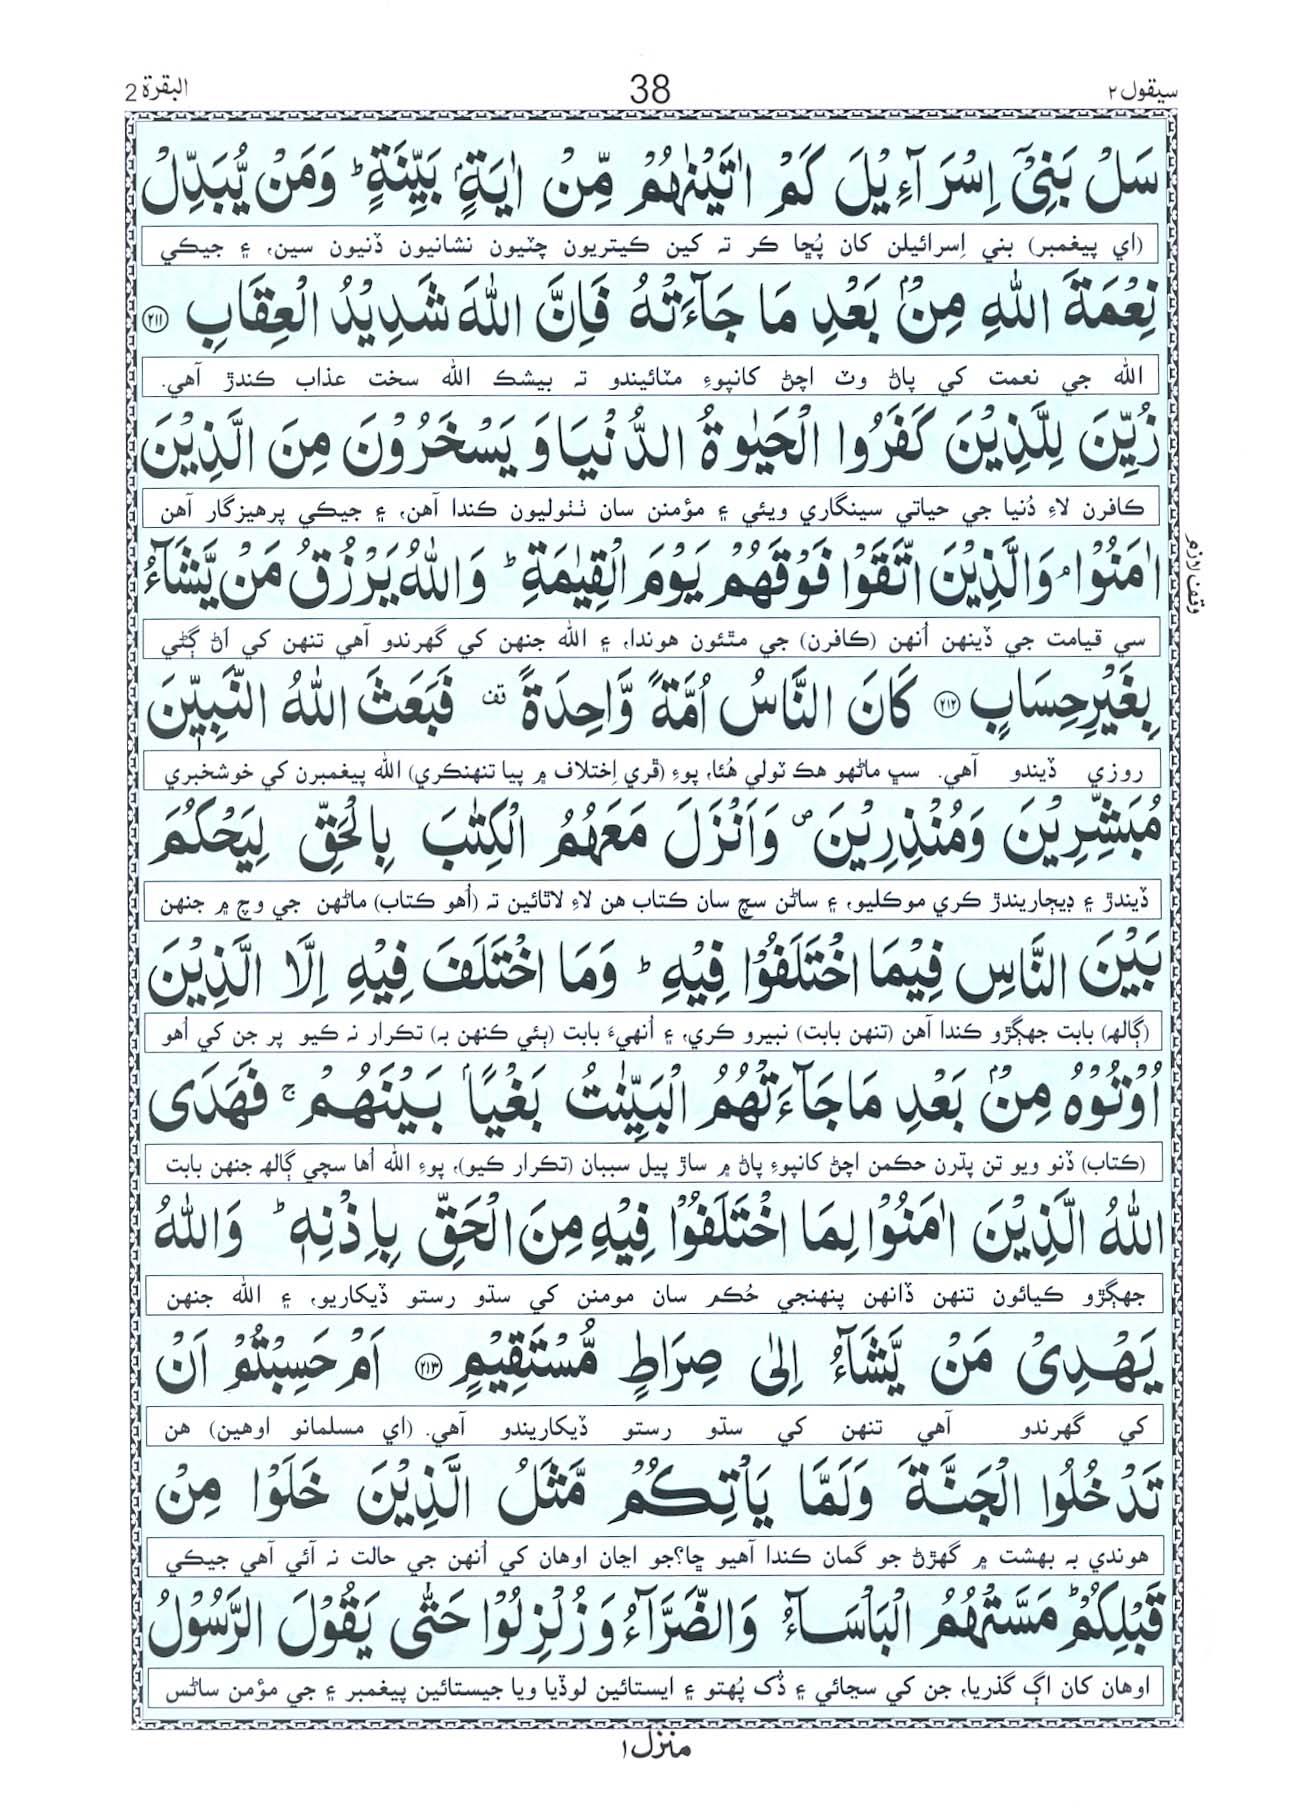 سيقول ٢
38
البقرة 2
سَلْ بَنِىْٓ اِسْرَآءِيْلَ كَمْ اٰتَيْنٰهُمْ مِّنْ اٰيَةٍۢ بَيِّنَةٍ ؕ وَمَنْ يُّبَدِّلْ
(اي پيغمبر) بني اِسرائيلن کان پُڇا ڪر تہ کين ڪيتريون چٽيون نشانيون ڏنيون سين، ۽ جيڪي
نِعْمَةَ اللّٰهِ مِنْۢ بَعْدِ مَا جَآءَتْهُ فَاِنَّ اللّٰهَ شَدِيْدُ الْعِقَابِ ﴿٢١١﴾
الله جي نعمت کي پاڻ وٽ اچڻ کانپوءِ مٽائيندو تہ بيشڪ الله سخت عذاب ڪندڙ آهي.
زُيِّنَ لِلَّذِيْنَ كَفَرُوا الْحَيٰوةُ الدُّنْيَا وَ يَسْخَرُوْنَ مِنَ الَّذِيْنَ
ڪافرن لاءِ دُنيا جي حياتي سينگاري ويئي ۽ مؤمنن سان ٺٺوليون ڪندا آهن، ۽ جيڪي پرهيزگار آهن
اٰمَنُوْا ۘ وَالَّذِيْنَ اتَّقَوْا فَوْقَهُمْ يَوْمَ الْقِيٰمَةِ ؕ وَاللّٰهُ يَرْزُقُ مَنْ يَّشَآءُ
وقف لازم
سي قيامت جي ڏينهن اُنهن (ڪافرن) جي مٿئون هوندا، ۽ الله جنهن کي گهرندو آهي تنهن کي اَڻ ڳڻي
بِغَيْرِ حِسَابٍ ﴿٢١٢﴾ كَانَ النَّاسُ اُمَّةً وَّاحِدَةً ۟ فَبَعَثَ اللّٰهُ النَّبِيّٖنَ
روزي ڏيندو آهي. سڀ ماڻهو هڪ ٽولي هُئا، پوءِ (ڦري اِختلاف ۾ پيا تنهنڪري) الله پيغمبرن کي خوشخبري
مُبَشِّرِيْنَ وَمُنْذِرِيْنَ ۪ وَاَنْزَلَ مَعَهُمُ الْكِتٰبَ بِالْحَقِّ لِيَحْكُمَ
ڏيندڙ ۽ ڊيڄاريندڙ ڪري موڪليو، ۽ ساڻن سچ سان ڪتاب هن لاءِ لاٿائين تہ (اُهو ڪتاب) ماڻهن جي وچ ۾ جنهن
بَيْنَ النَّاسِ فِيْمَا اخْتَلَفُوْا فِيْهِ ؕ وَمَا اخْتَلَفَ فِيْهِ اِلَّا الَّذِيْنَ
(ڳالهہ) بابت جهڳڙو ڪندا آهن (تنهن بابت) نبيرو ڪري، ۽ اُنهيءَ بابت (ٻئي ڪنهن بہ) تڪرار نہ ڪيو پر جن کي اُهو
اُوْتُوْهُ مِنْۢ بَعْدِ مَا جَآءَتْهُمُ الْبَيِّنٰتُ بَغْيًاۢ بَيْنَهُمْ ۚ فَهَدَى
(ڪتاب) ڏنو ويو تن پڌرن حڪمن اچڻ کانپوءِ پاڻ ۾ ساڙ پيل سببان (تڪرار ڪيو)، پوءِ الله اُها سچي ڳالهہ جنهن بابت
اللّٰهُ الَّذِيْنَ اٰمَنُوْا لِمَا اخْتَلَفُوْا فِيْهِ مِنَ الْحَقِّ بِاِذْنِهٖ ؕ وَاللّٰهُ
جهڳڙو ڪيائون تنهن ڏانهن پنهنجي حُڪم سان مومنن کي سڌو رستو ڏيکاريو، ۽ الله جنهن
يَهْدِىْ مَنْ يَّشَآءُ اِلٰى صِرَاطٍ مُّسْتَقِيْمٍ ﴿٢١٣﴾ اَمْ حَسِبْتُمْ اَنْ
کي گهرندو آهي تنهن کي سڌو رستو ڏيکاريندو آهي. (اي مسلمانو اوهين) هن
تَدْخُلُوا الْجَنَّةَ وَلَمَّا يَاْتِكُمْ مَّثَلُ الَّذِيْنَ خَلَوْا مِنْ
هوندي بہ بهشت ۾ گهڙڻ جو گمان ڪندا آهيو ڇا؟جو اڃان اوهان کي اُنهن جي حالت نہ آئي آهي جيڪي
قَبْلِكُمْ ؕ مَسَّتْهُمُ الْبَاْسَآءُ وَالضَّرَّآءُ وَ زُلْزِلُوْا حَتّٰى يَقُوْلَ الرَّسُوْلُ
اوهان کان اڳ گذريا، جن کي سڃائي ۽ ڏک پُهتو ۽ ايستائين لوڏيا ويا جيستائين پيغمبر ۽ جي مؤمن ساڻس
منزل ١